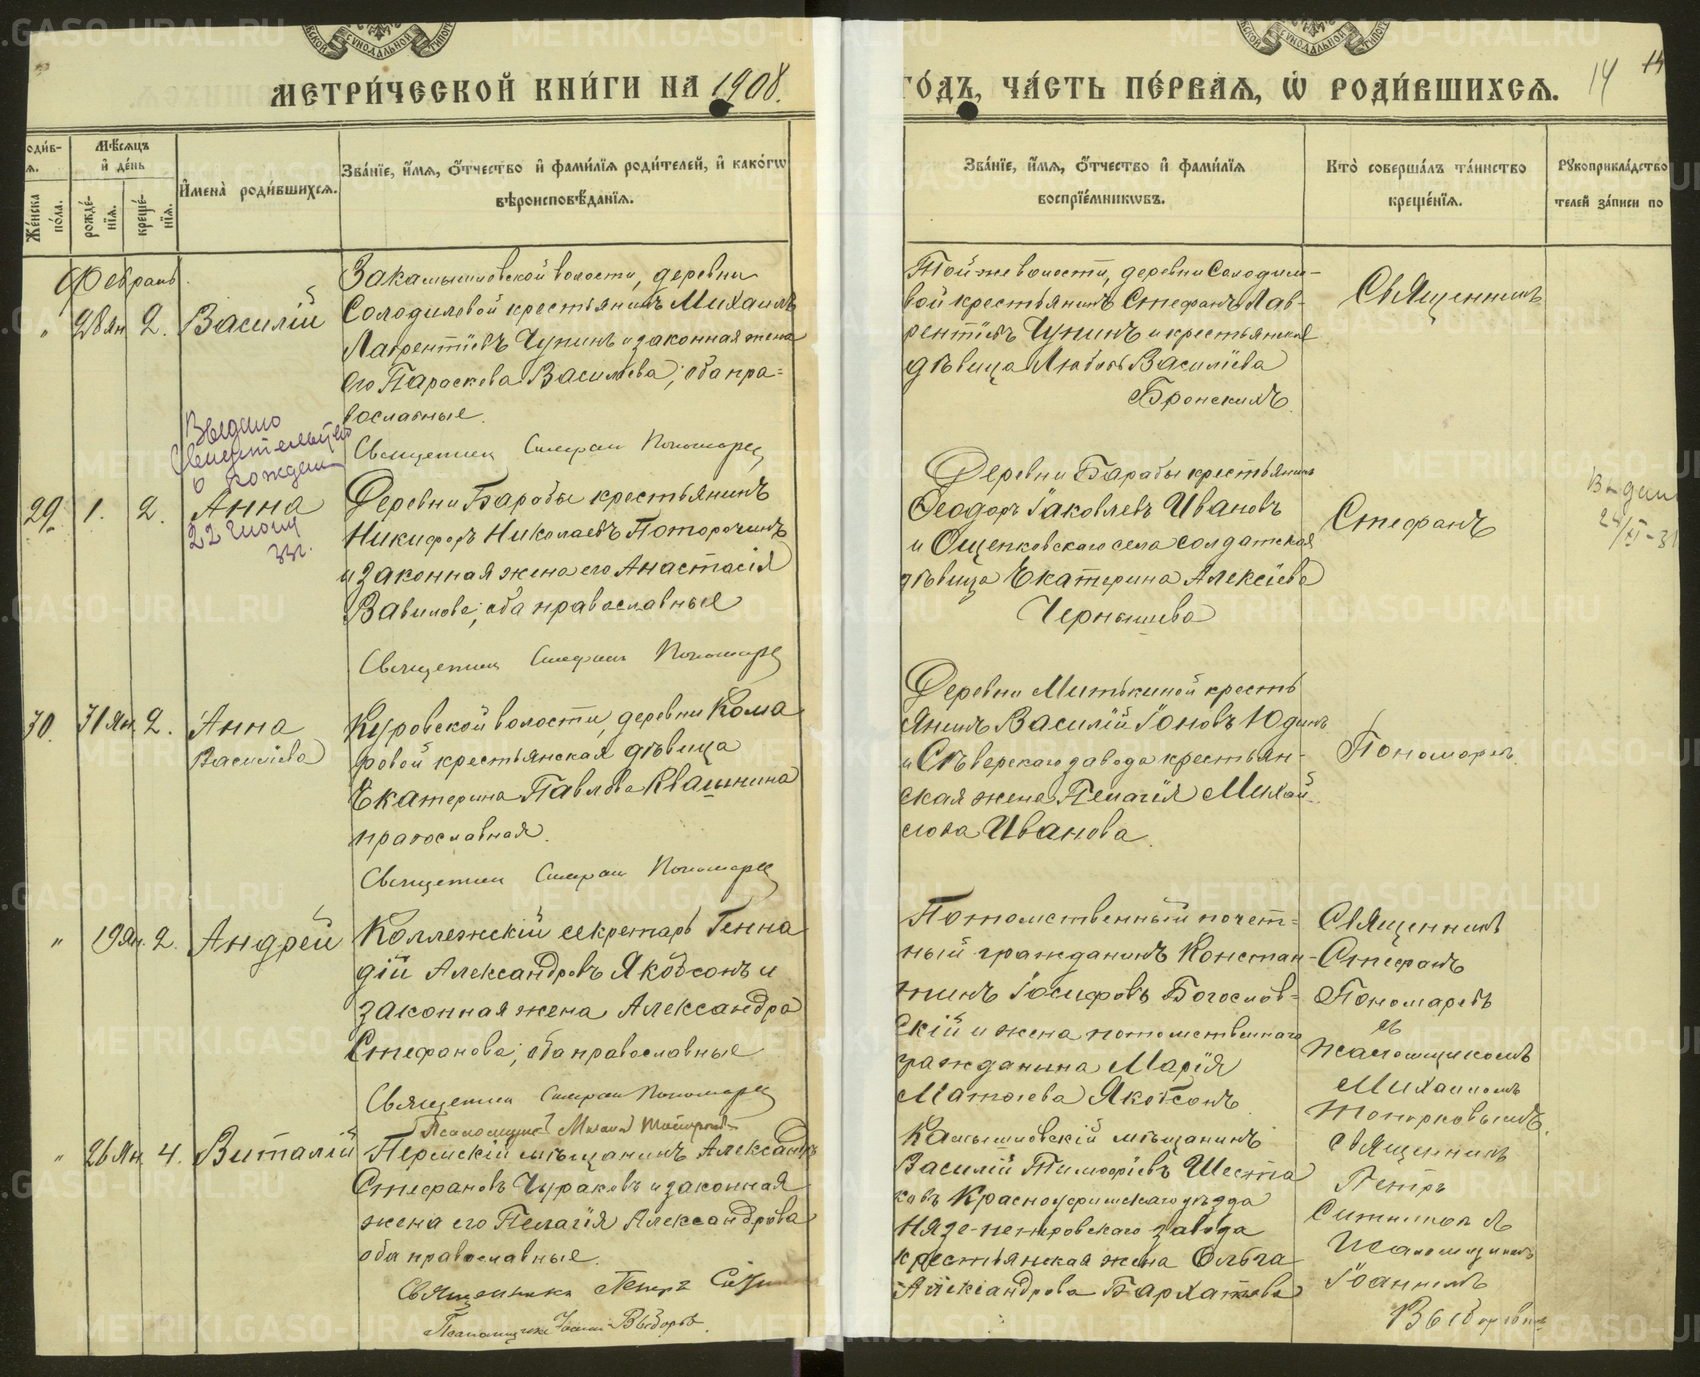 МЕТРИ́ЧЕСКОЙ КНИ́ГИ НА 1908.
ГО́ДЪ, ЧА́СТЬ ПЕ́РВАѦ, Ѡ҆ РОДИ́ВШИХСѦ.
14
Мѣ́сѧцъ
и҆ де́нь
Же́нска
по́ла.
рожде́-
нїѧ.
креще́-
нїѧ.
И҆мена̀ роди́вшихсѧ.
Зва́нїе, и҆́мѧ, ѻ҆́тчество и҆ фами́лїѧ роди́телей, и҆ како́гѡ
вѣроисповѣ́данїѧ.
Зва́нїе, и҆́мѧ, ѻ҆́тчество и҆ фами́лїѧ
воспрїе́мникѡвъ.
Кто̀ соверша́лъ та́инство
креще́нїѧ.
Рꙋкоприкла́дство
телей за́писи по
Февраль.
" 28 ян 2. Василій
Закамышловской волости, деревни
Солодиловой крестьянинъ Михаилъ
Лаврентіевъ Чупинъ и законная жена
его Параскева Васильева; оба пра-
вославные.
Священник Стефан Пономарев
Той же волости, деревни Солодило-
вой крестьянинъ Стефанъ Лав-
рентіевъ Чупинъ и крестьянская
дѣвица Любовь Василіева
Бронскихъ.
Священникъ
Выдано
свидетельство
о рожден
29. 1. 2. Анна
22 июня
33г.
Деревни Барабы крестьянинъ
Никифоръ Николаевъ Поторочинъ
и законная жена его Анастасія
Вавилова; оба православные
Священник Стефан Пономарев
Деревни Барабы крестьянинъ
Ѳеодоръ Іаковлевъ Ивановъ
и Ощепковскаго села солдатская
дѣвица Екатерина Алексіева
Чернышева
Стефанъ
30. 31 Ян. 2. Анна
Василіева
Куровской волости, деревни Кома
ровой крестьянская дѣвица
Екатерина Павлова Квашнина
православная.
Священник Стефан Пономарев
Деревни Митькиной кресть
янинъ Василій Іоновъ Юдинъ
и Сѣверскаго завода крестьян-
ская жена Пелагія Михай-
лова Иванова.
Пономаревъ.
" 19 Ян. 2. Андрей
Коллежскій секретарь Генна
дій Александровъ Якобсонъ и
законная жена Александра
Стефанова; оба православные
Священник Стефан Пономарев
Псаломщик Михаил Топорков
Потомственный почет-
ный гражданинъ Констан-
тинъ Іосифовъ Богослов-
скій и жена потомственнаго
гражданина Марія
Матѳіева Якобсонъ.
Священникъ
Стефанъ
Пономаревъ
съ
псаломщикомъ
Михаиломъ
Топорковымъ.
" 26 Ян. 4. Виталій
Пермскій мѣщанинъ Александръ
Стефановъ Чураковъ и законная
жена его Пелагія Александрова
оба православные.
Священникъ Петръ Ситни
Псаломщикъ Іоанн Выборов.
Камышловскій мѣщанинъ
Василій Тимофѣевъ Шеста
ковъ Красноуфимскаго уѣзда
Нязе-петровскаго завода
крестьянская жена Ольга
Александрова Бархатова
Священникъ
Петръ
Ситниковъ
Псаломщикомъ
Іоанномъ